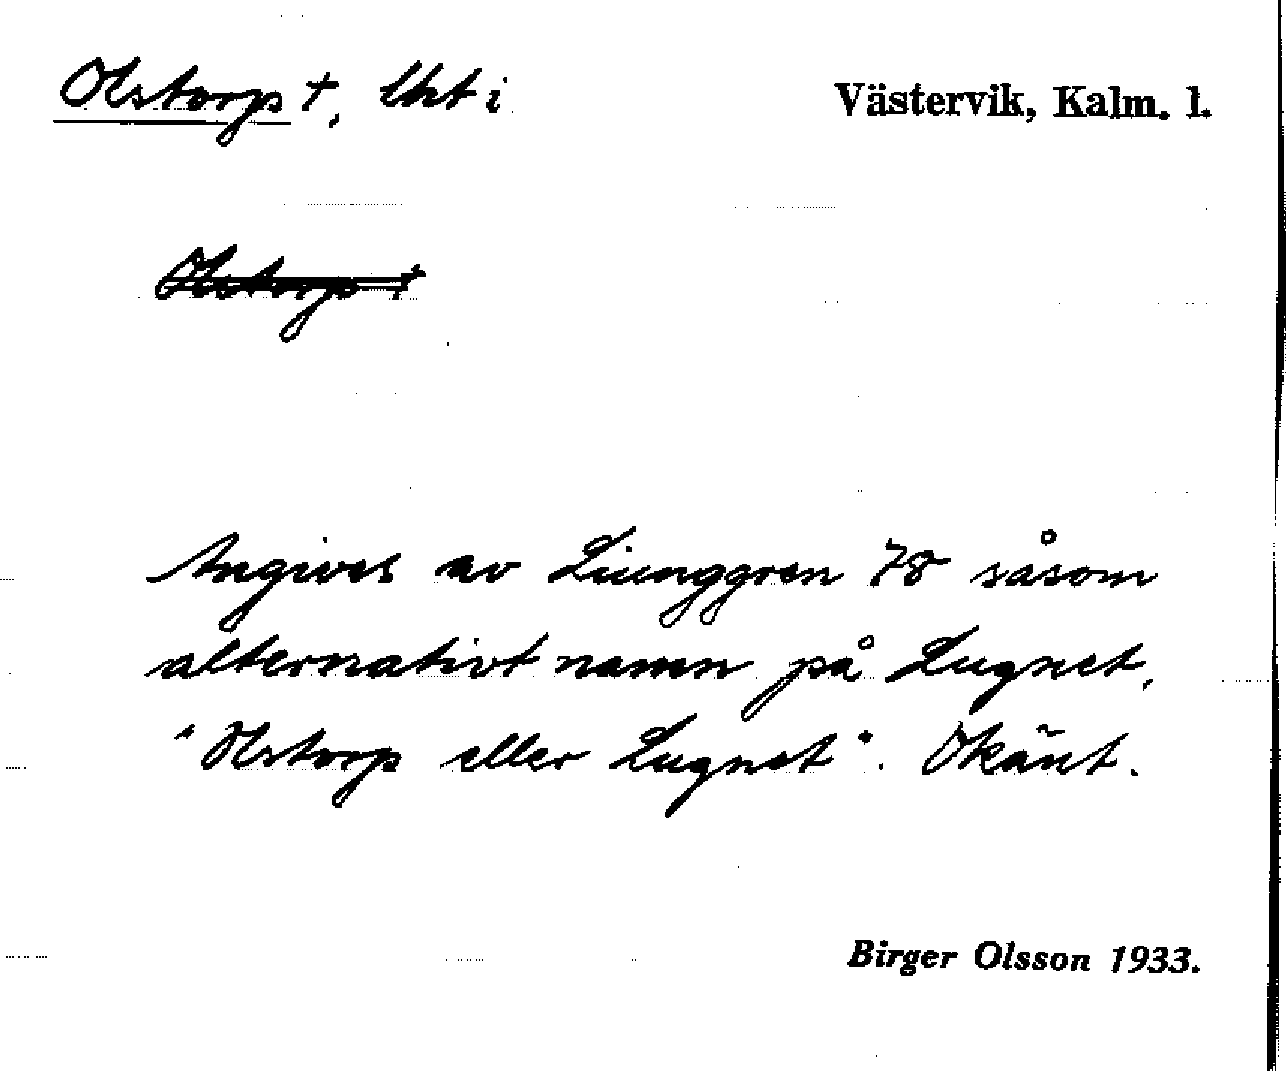 Olstorp †, lht i Västervik, Kalm. l.
Olstorp †
Angives av Liunggren 78 såsom
alternativt namn på Lugnet.
"Olstorp eller Lugnet". Okänt.
Birger Olsson 1933.